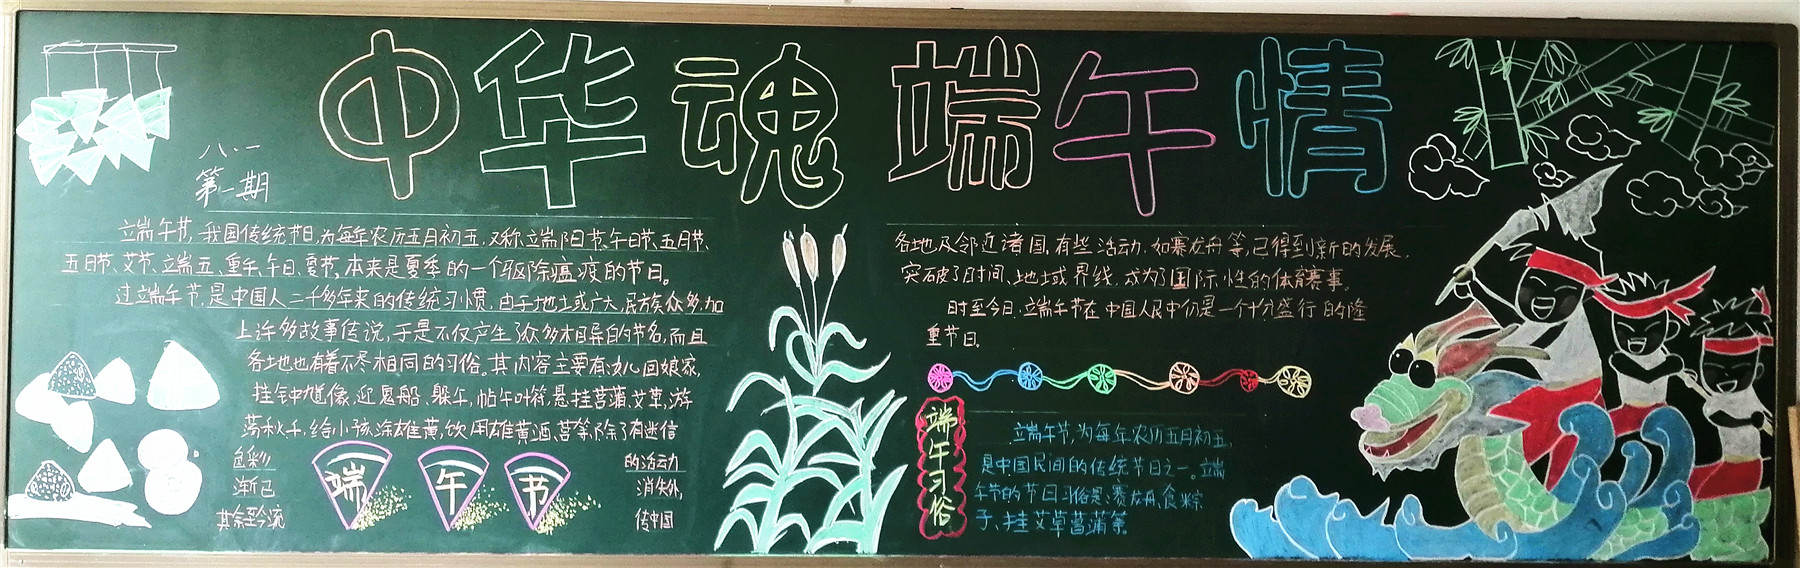 中华魂 端午情
八.一
第一期
立端午节,我国传统节日,为每年农历五月初五,又称立端阳节、午日节、五月节、
五日节、艾节、立端五、重午、午日、夏节,本来是夏季的一个驱除瘟疫的节日。
过立端午节,是中国人二千多年来的传统习惯,由于地域广大,民族众多,加
上许多故事传说,于是不仅产生了众多相异的节名,而且
各地也有着不尽相同的习俗。其内容主要有:女儿回娘家,
挂钟馗像,迎鬼船、躲午,帖午叶符,悬挂菖蒲、艾草,游
荡秋千,给小孩涂雄黄,饮用雄黄酒、菖等,除了有迷信
色彩 的活动
渐已 消失外,
其余至今流 传中国
端 午 节
各地及邻近诸国,有些活动,如赛龙舟等,已得到新的发展,
突破了时间、地域界线,成为了国际性的体育赛事。
时至今日,立端午节在中国人民中仍是一个十分盛行的隆
重节日。
端午习俗
立端午节,为每年农历五月初五,
是中国民间的传统节日之一。端
午节的节日习俗是:赛龙舟,食粽
子、挂艾草菖蒲等。